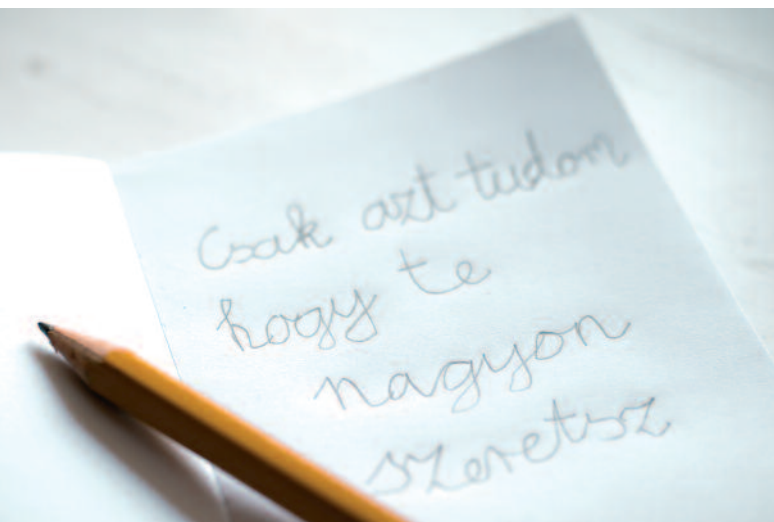 Csak azt tudom
hogy te
nagyon
szeretsz